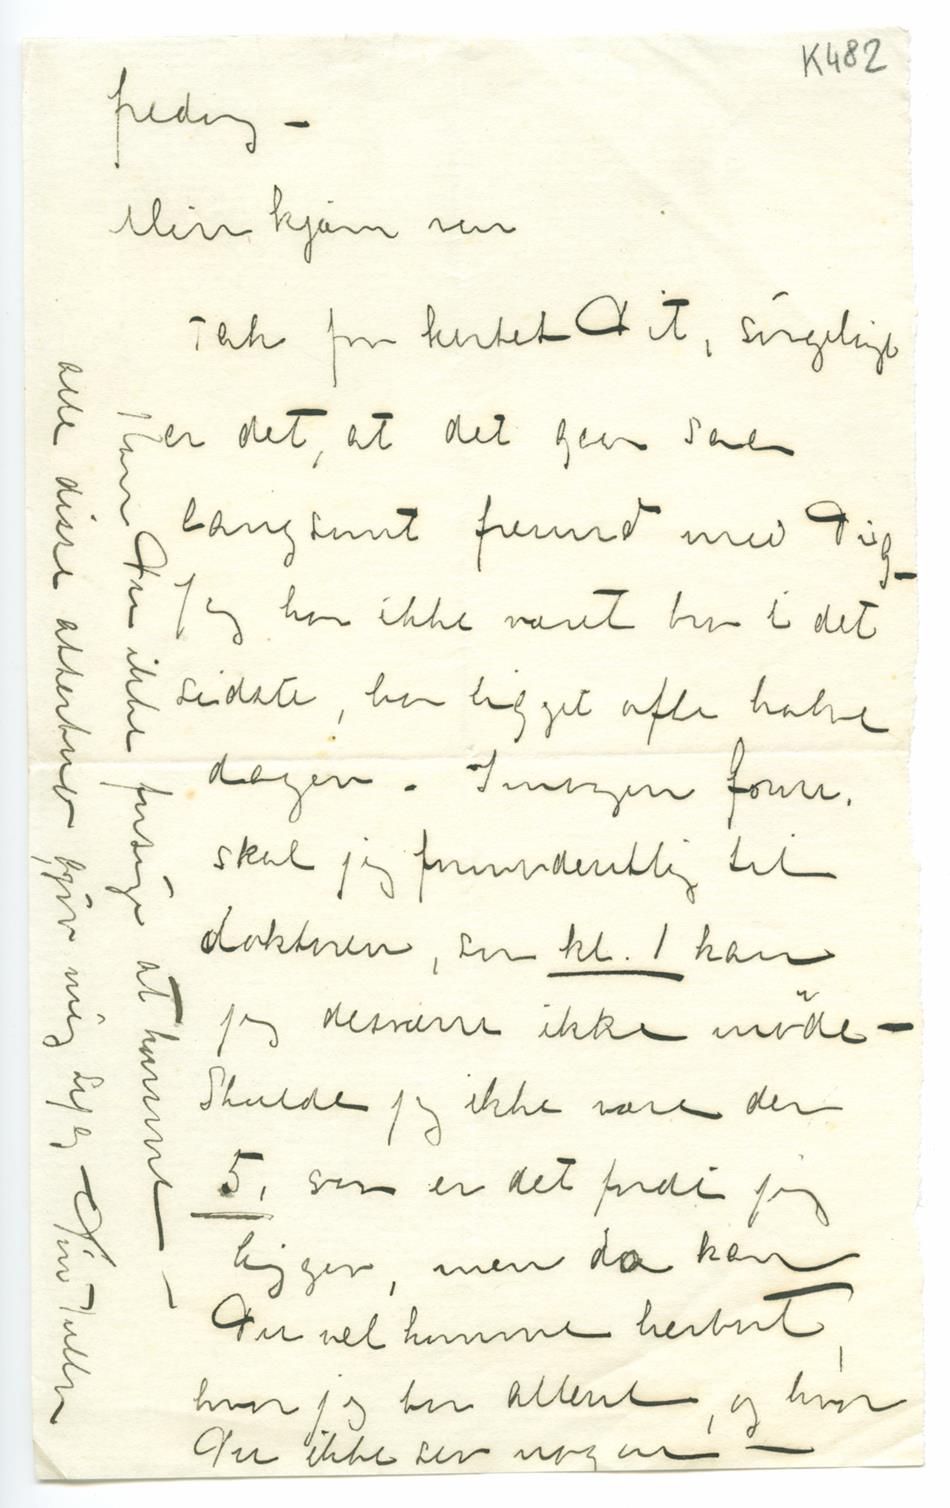 K482
fredag –
Min kjære ven
Tak for kortet Dit, sørgeligt
er det, at det gaar saa
langsomt fremad med Dig –
Jeg har ikke været bra i det
sidste, har ligget ofte halve
dagen. Imorgen form.
skal jeg formodentlig til
doktoren, saa kl. 1 kan
jeg desværre ikke møde –
Skulde jeg ikke være der
5, saa er det fordi jeg
ligger, men da kan
Du vel komme herbort,
hvor jeg bor alene, og hvor
Du ikke ser nogen –
Kan Du ikke forsøge at komme –
alle disse attentater gjør mig syg – Din Tulla